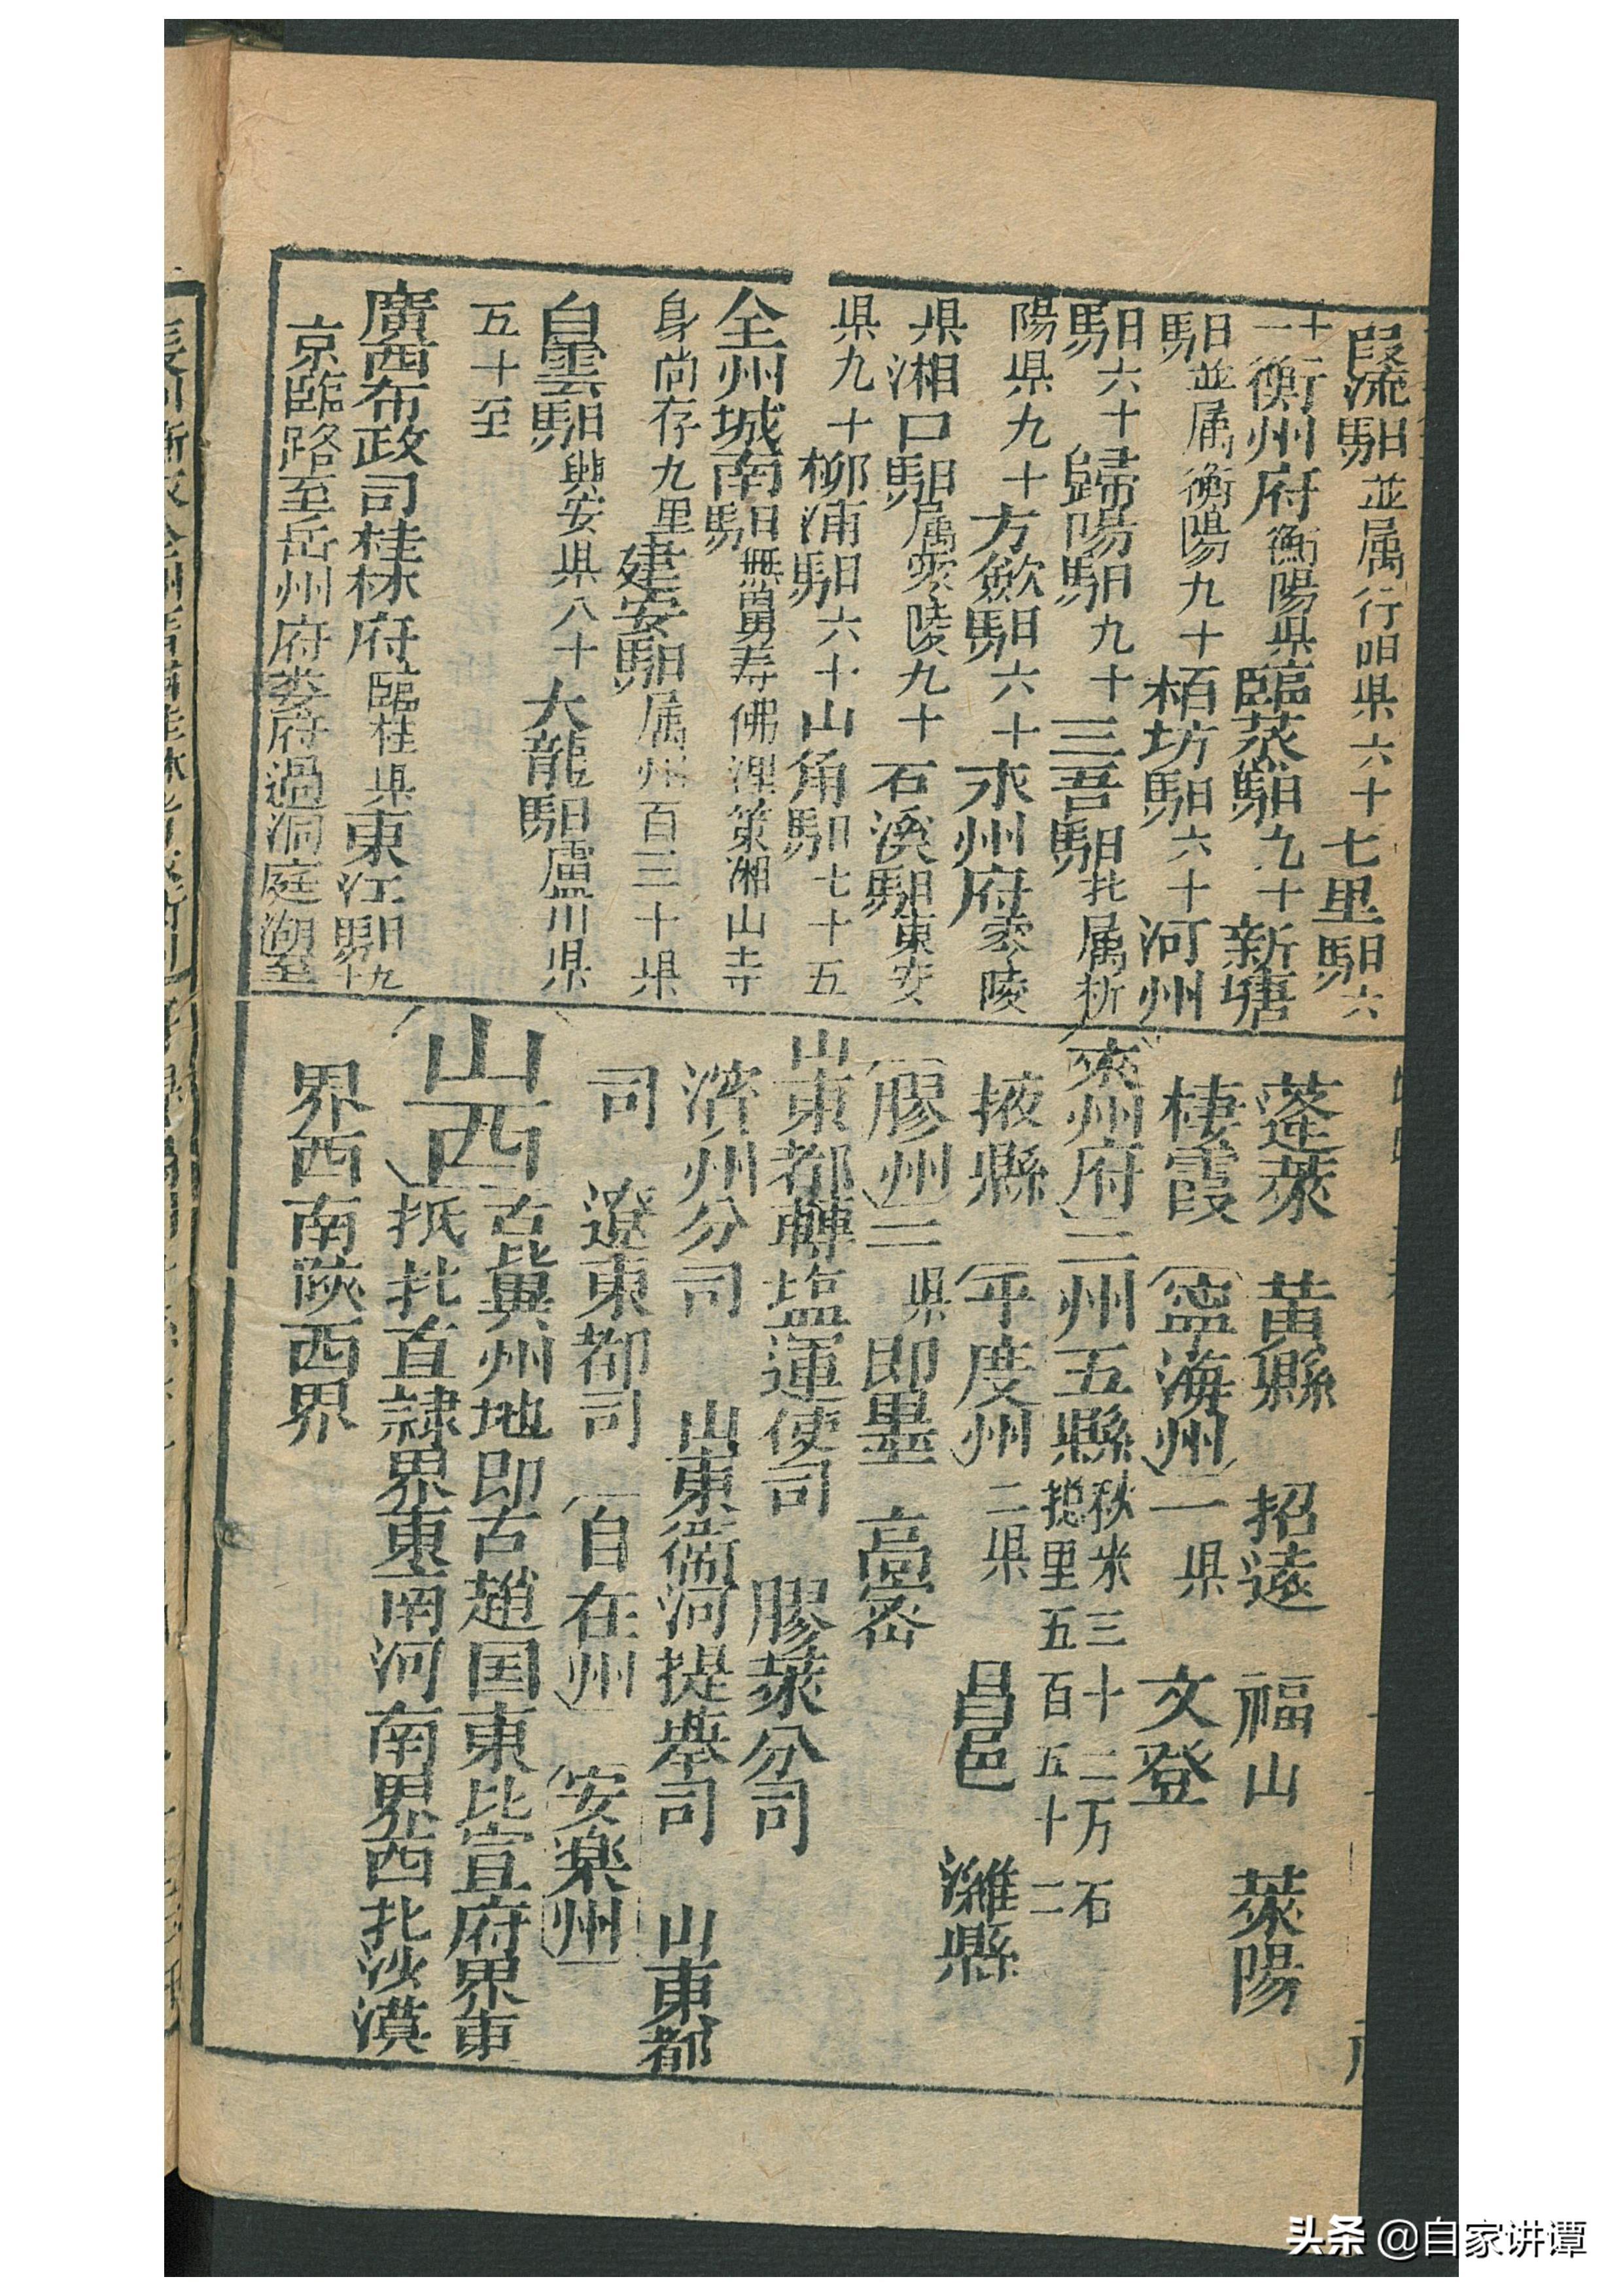 叚流馹並属行旧県六十七里馹六
十衡州府衡陽県臨蒸馹九十新塘
馹並属衡陽九十栢坊馹六十河州
馹六十歸陽馹九十三吾馹北属祈
陽県九十方㵎馹六十永州府零陵
県湘口馹属零陵九十石溪馹東安
県九十柳浦馹六十山角馹七十五
全州城南馹無量寿佛涅槃湘山寺
身尚存九里建安馹属州百三十県
白雲馹興安県八十大龍馹盧川県
五十至
廣西布政司桂林府臨桂県東江馹九十
京臨路至岳州府娄府過洞庭湖至
蓬萊 黄縣 招遠 福山 萊陽
棲霞 寧海州一県 文登
萊州府二州五縣秋米三十二万石 揔里五百五十二
掖縣 平度州二県 昌邑 濰縣
膠州二県 即墨 高密
山東都轉塩運使司 膠萊分司
濱州分司 山東衛河提舉司 山東都
司 遼東都司 自在州 安楽州
山西古冀州地即古趙国東北宣府界東
抵北直隷界東南河南界西北沙漠
界西南陜西界
头条 @自家讲谭